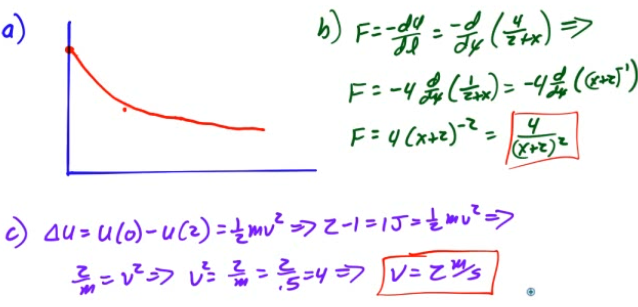 a)
b) F = -dU/dl = -d/dx (4/(2+x)) ⇒
F = -4 d/dx (1/(2+x)) = -4 d/dx ((x+2)^-1)
F = 4(x+2)^-2 = 4/(x+2)^2
c) ΔU = U(0) - U(2) = 1/2 mv^2 ⇒ 2-1 = 1J = 1/2 mv^2 ⇒
2/m = v^2 ⇒ v^2 = 2/m = 2/.5 = 4 ⇒ v = 2 m/s